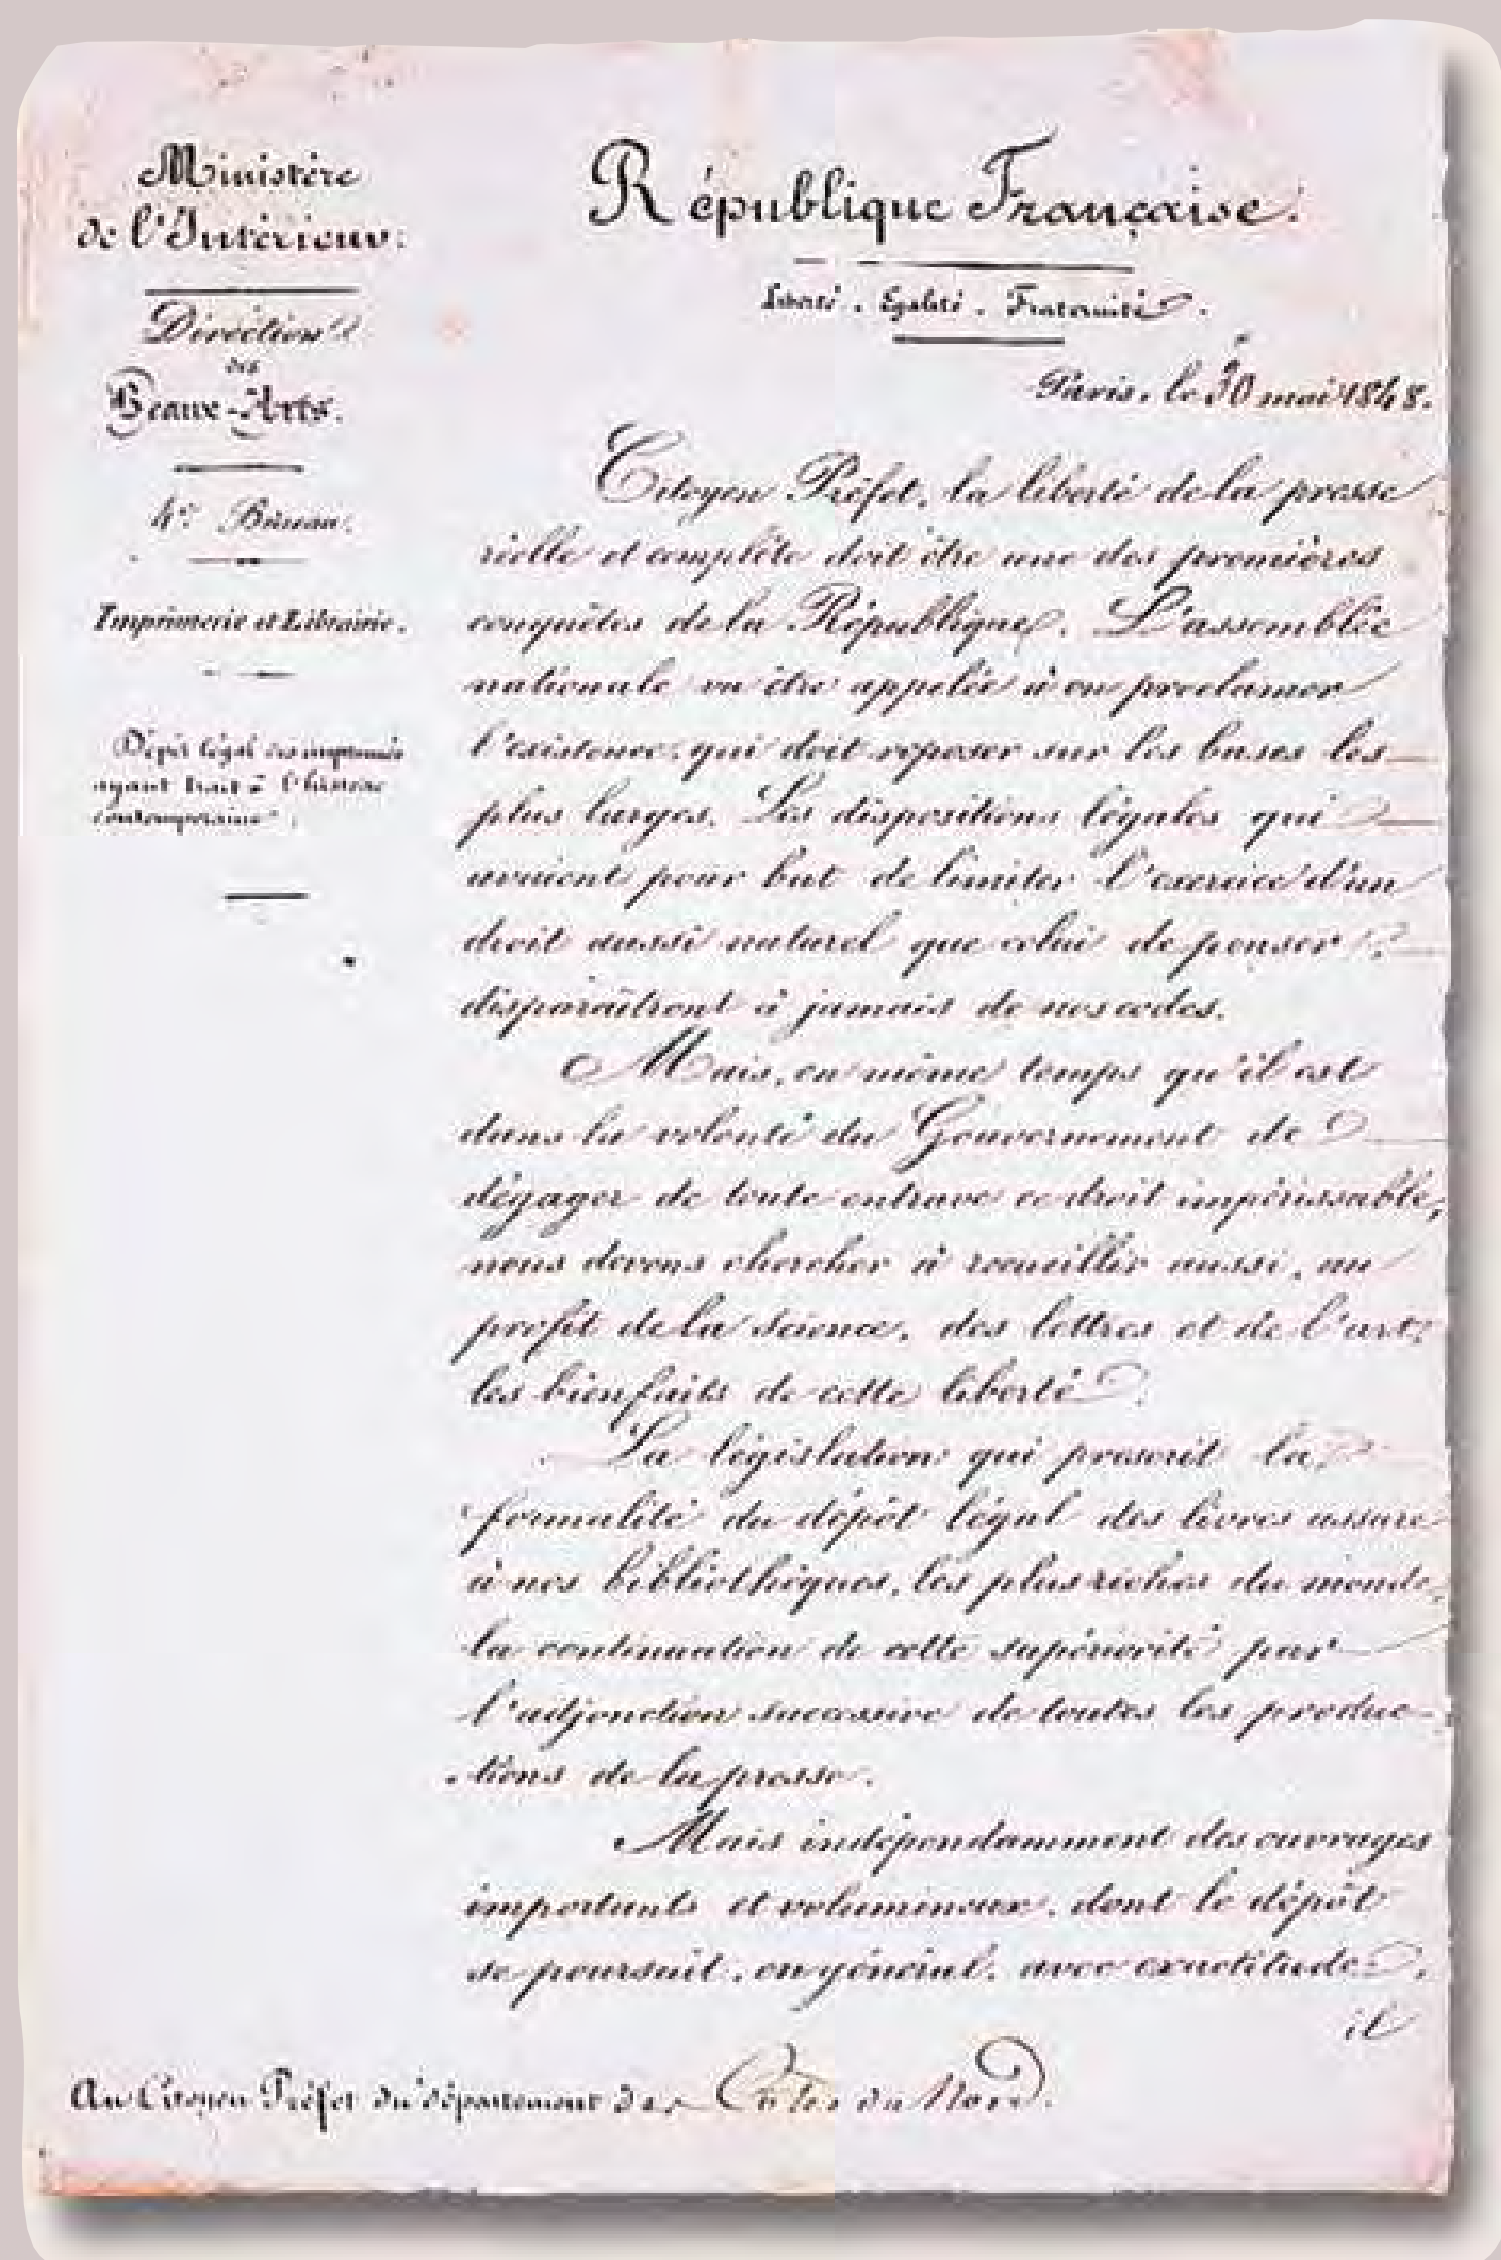 Ministère
de l'Intérieur.
Direction
des
Beaux-Arts.
4e Bureau.
Imprimerie et Librairie.
Dépôt légal des imprimés
ayant trait à l'histoire
contemporaine.
République Française.
Liberté. Egalité. Fraternité.
Paris, le 30 mai 1848.
Citoyen Préfet, la liberté de la presse
réelle et complète doit être une des premières
conquêtes de la République. L'assemblée
nationale va être appelée à en proclamer
l'existence, qui doit reposer sur les bases les
plus larges. Les dispositions légales qui
avaient pour but de limiter l'exercice d'un
droit aussi naturel que celui de penser
disparaîtront à jamais de nos codes.
Mais, en même temps qu'il est
dans la volonté du Gouvernement de
dégager de toute entrave ce droit impérissable,
nous devons chercher à recueillir aussi, au
profit de la science, des lettres et de l'art,
les bienfaits de cette liberté.
La législation qui prescrit la
formalité du dépôt légal des livres assure
à nos bibliothèques, les plus riches du monde,
la continuation de cette supériorité par
l'adjonction successive de toutes les produc-
tions de la presse.
Mais indépendamment des ouvrages
importants et volumineux, dont le dépôt
se poursuit, en général, avec exactitude,
il
Au Citoyen Préfet du département des Côtes du Nord.